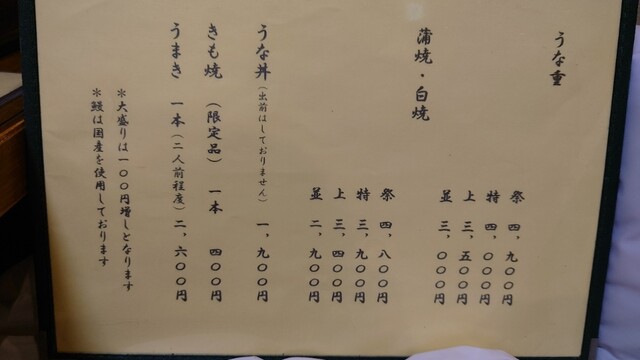 うな重
祭 四、九〇〇円
特 四、〇〇〇円
上 三、五〇〇円
並 三、〇〇〇円
蒲焼・白焼
祭 四、八〇〇円
特 三、九〇〇円
上 三、四〇〇円
並 二、九〇〇円
うな丼（出前はしておりません） 一、九〇〇円
きも焼 （限定品） 一本 四〇〇円
うまき 一本（二人前程度） 二、六〇〇円
＊大盛りは一〇〇円増しとなります
＊鰻は国産を使用しております